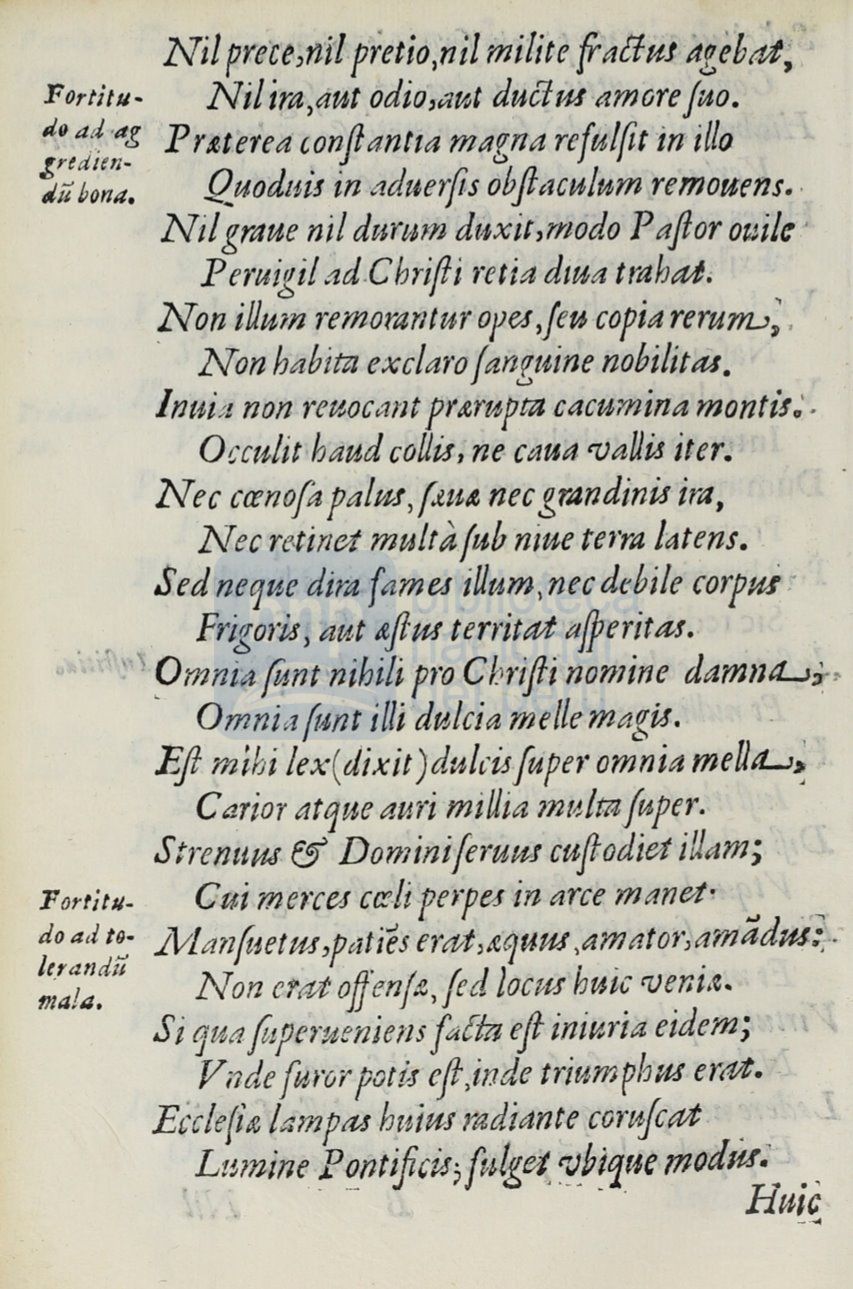 Nil prece, nil pretio, nil milite fractus agebat,
Nil ira, aut odio, aut ductus amore ſuo.
Fortitu-
do ad ag
gredien-
dũ bona.
Præterea conſtantia magna refulſit in illo
Quoduis in aduerſis obſtaculum remouens.
Nil graue nil durum duxit, modo Paſtor ouile
Peruigil ad Chriſti retia diua trahat.
Non illum remorantur opes, ſeu copia rerum,
Non habita exclaro ſanguine nobilitas.
Inuia non reuocant prærupta cacumina montis.
Occulit haud collis, ne caua vallis iter.
Nec cœnoſa palus, ſæuæ nec grandinis ira,
Nec retinet multà ſub niue terra latens.
Sed neque dira fames illum, nec debile corpus
Frigoris, aut æſtus territat aſperitas.
Omnia ſunt nihili pro Chriſti nomine damna;
Omnia ſunt illi dulcia melle magis.
Eſt mihi lex (dixit) dulcis ſuper omnia mella,
Carior atque auri millia multa ſuper.
Strenuus & Domini ſeruus cuſtodiet illam;
Cui merces cœli perpes in arce manet.
Fortitu-
do ad to-
lerandũ
mala.
Manſuetus, patiẽs erat, æquus, amator, amãdus:
Non erat offenſæ, ſed locus huic veniæ.
Si qua ſuperueniens facta eſt iniuria eidem;
Vnde furor potis eſt, inde triumphus erat.
Eccleſiæ lampas huius radiante coruſcat
Lumine Pontificis; fulget vbique modus.
Huic